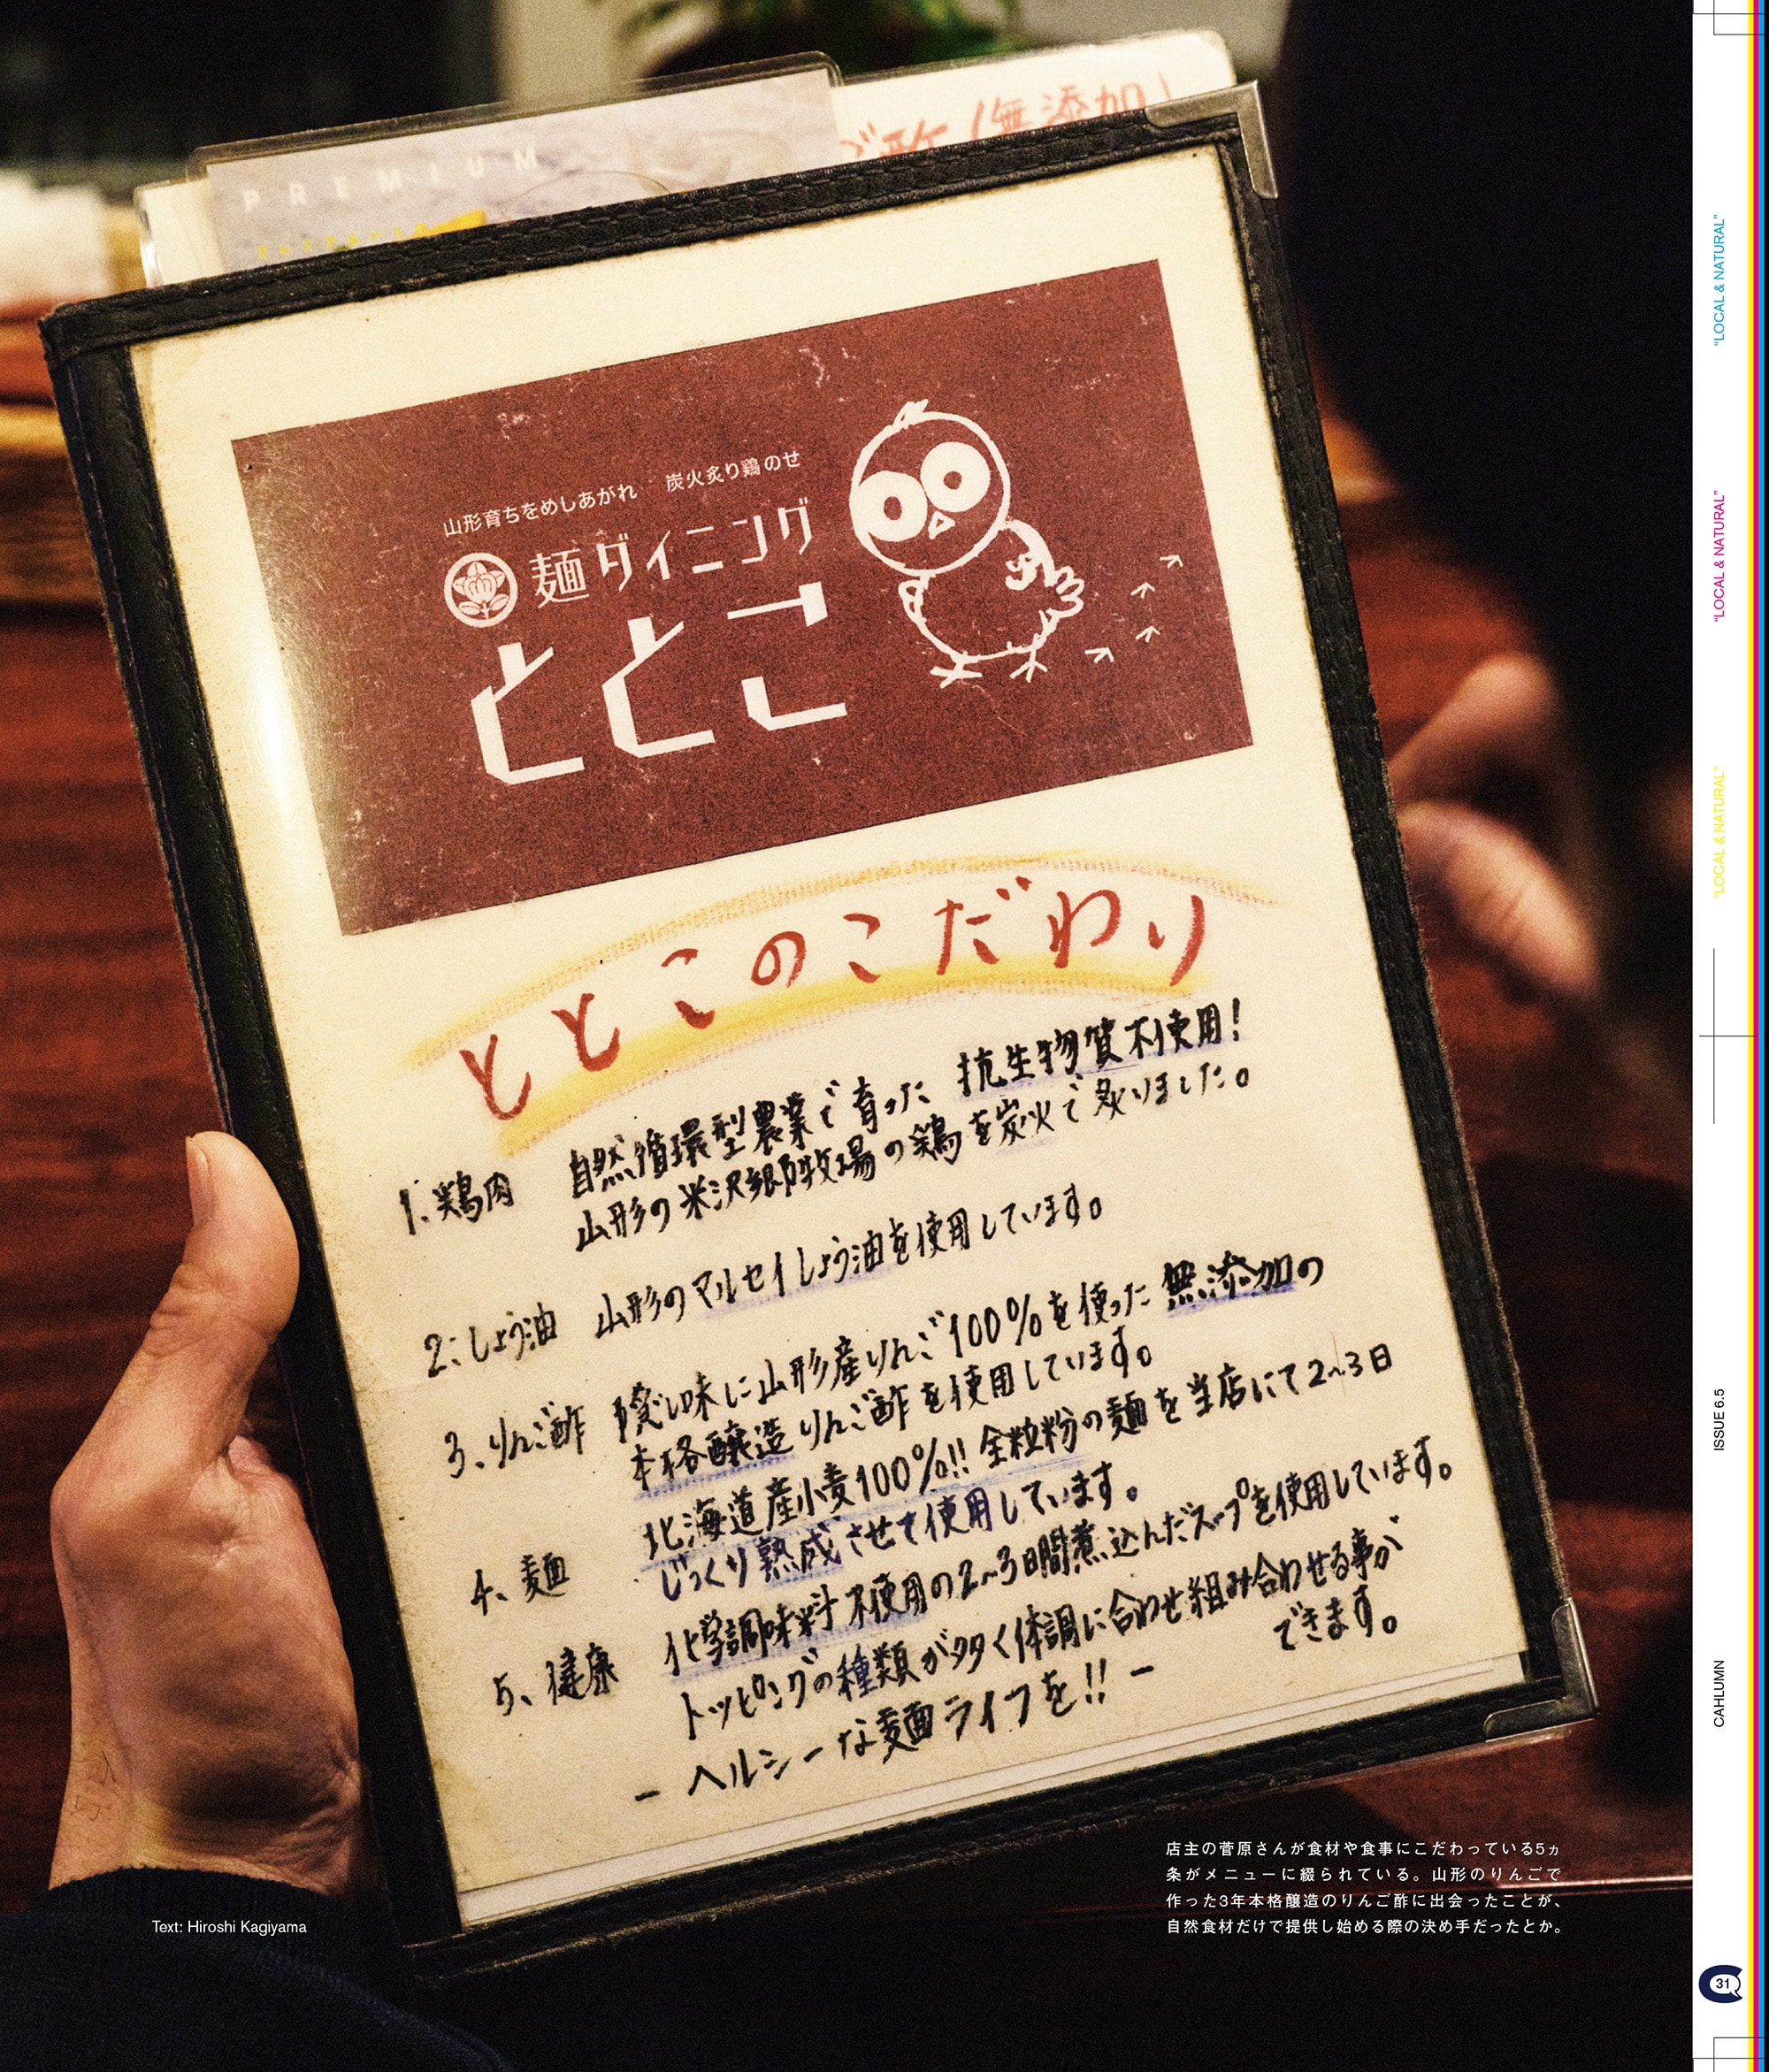 ご酢(無添加)
PREMIUM
山形育ちをめしあがれ 炭火炙り鶏のせ
麺ダイニング
ととこ
ととこのこだわり
1.鶏肉 自然循環型農業で育った 抗生物質不使用!
山形の米沢郷牧場の鶏を炭火で炙りました。
2.しょう油 山形のマルセイしょう油を使用しています。
3.りんご酢 隠し味に山形産りんご100%を使った無添加の
本格醸造りんご酢を使用しています。
4、麺 北海道産小麦100%!! 全粒粉の麺を当店にて2~3日
じっくり熟成させて使用しています。
5、健康 化学調味料不使用の2~3日間煮込んだスープを使用しています。
トッピングの種類が多く体調に合わせ組み合わせる事が
できます。
- ヘルシーな麺ライフを!! -
Text: Hiroshi Kagiyama
店主の菅原さんが食材や食事にこだわっている5ヵ
条がメニューに綴られている。山形のりんごで
作った3年本格醸造のりんご酢に出会ったことが、
自然食材だけで提供し始める際の決め手だったとか。
"LOCAL & NATURAL"
"LOCAL & NATURAL"
"LOCAL & NATURAL"
ISSUE 6.5
CAHLUMN
31